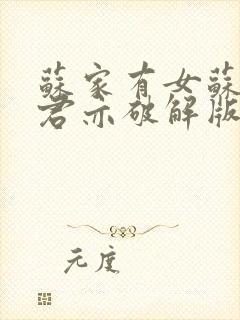 蘇家有女蘇
君亦破解版
元度